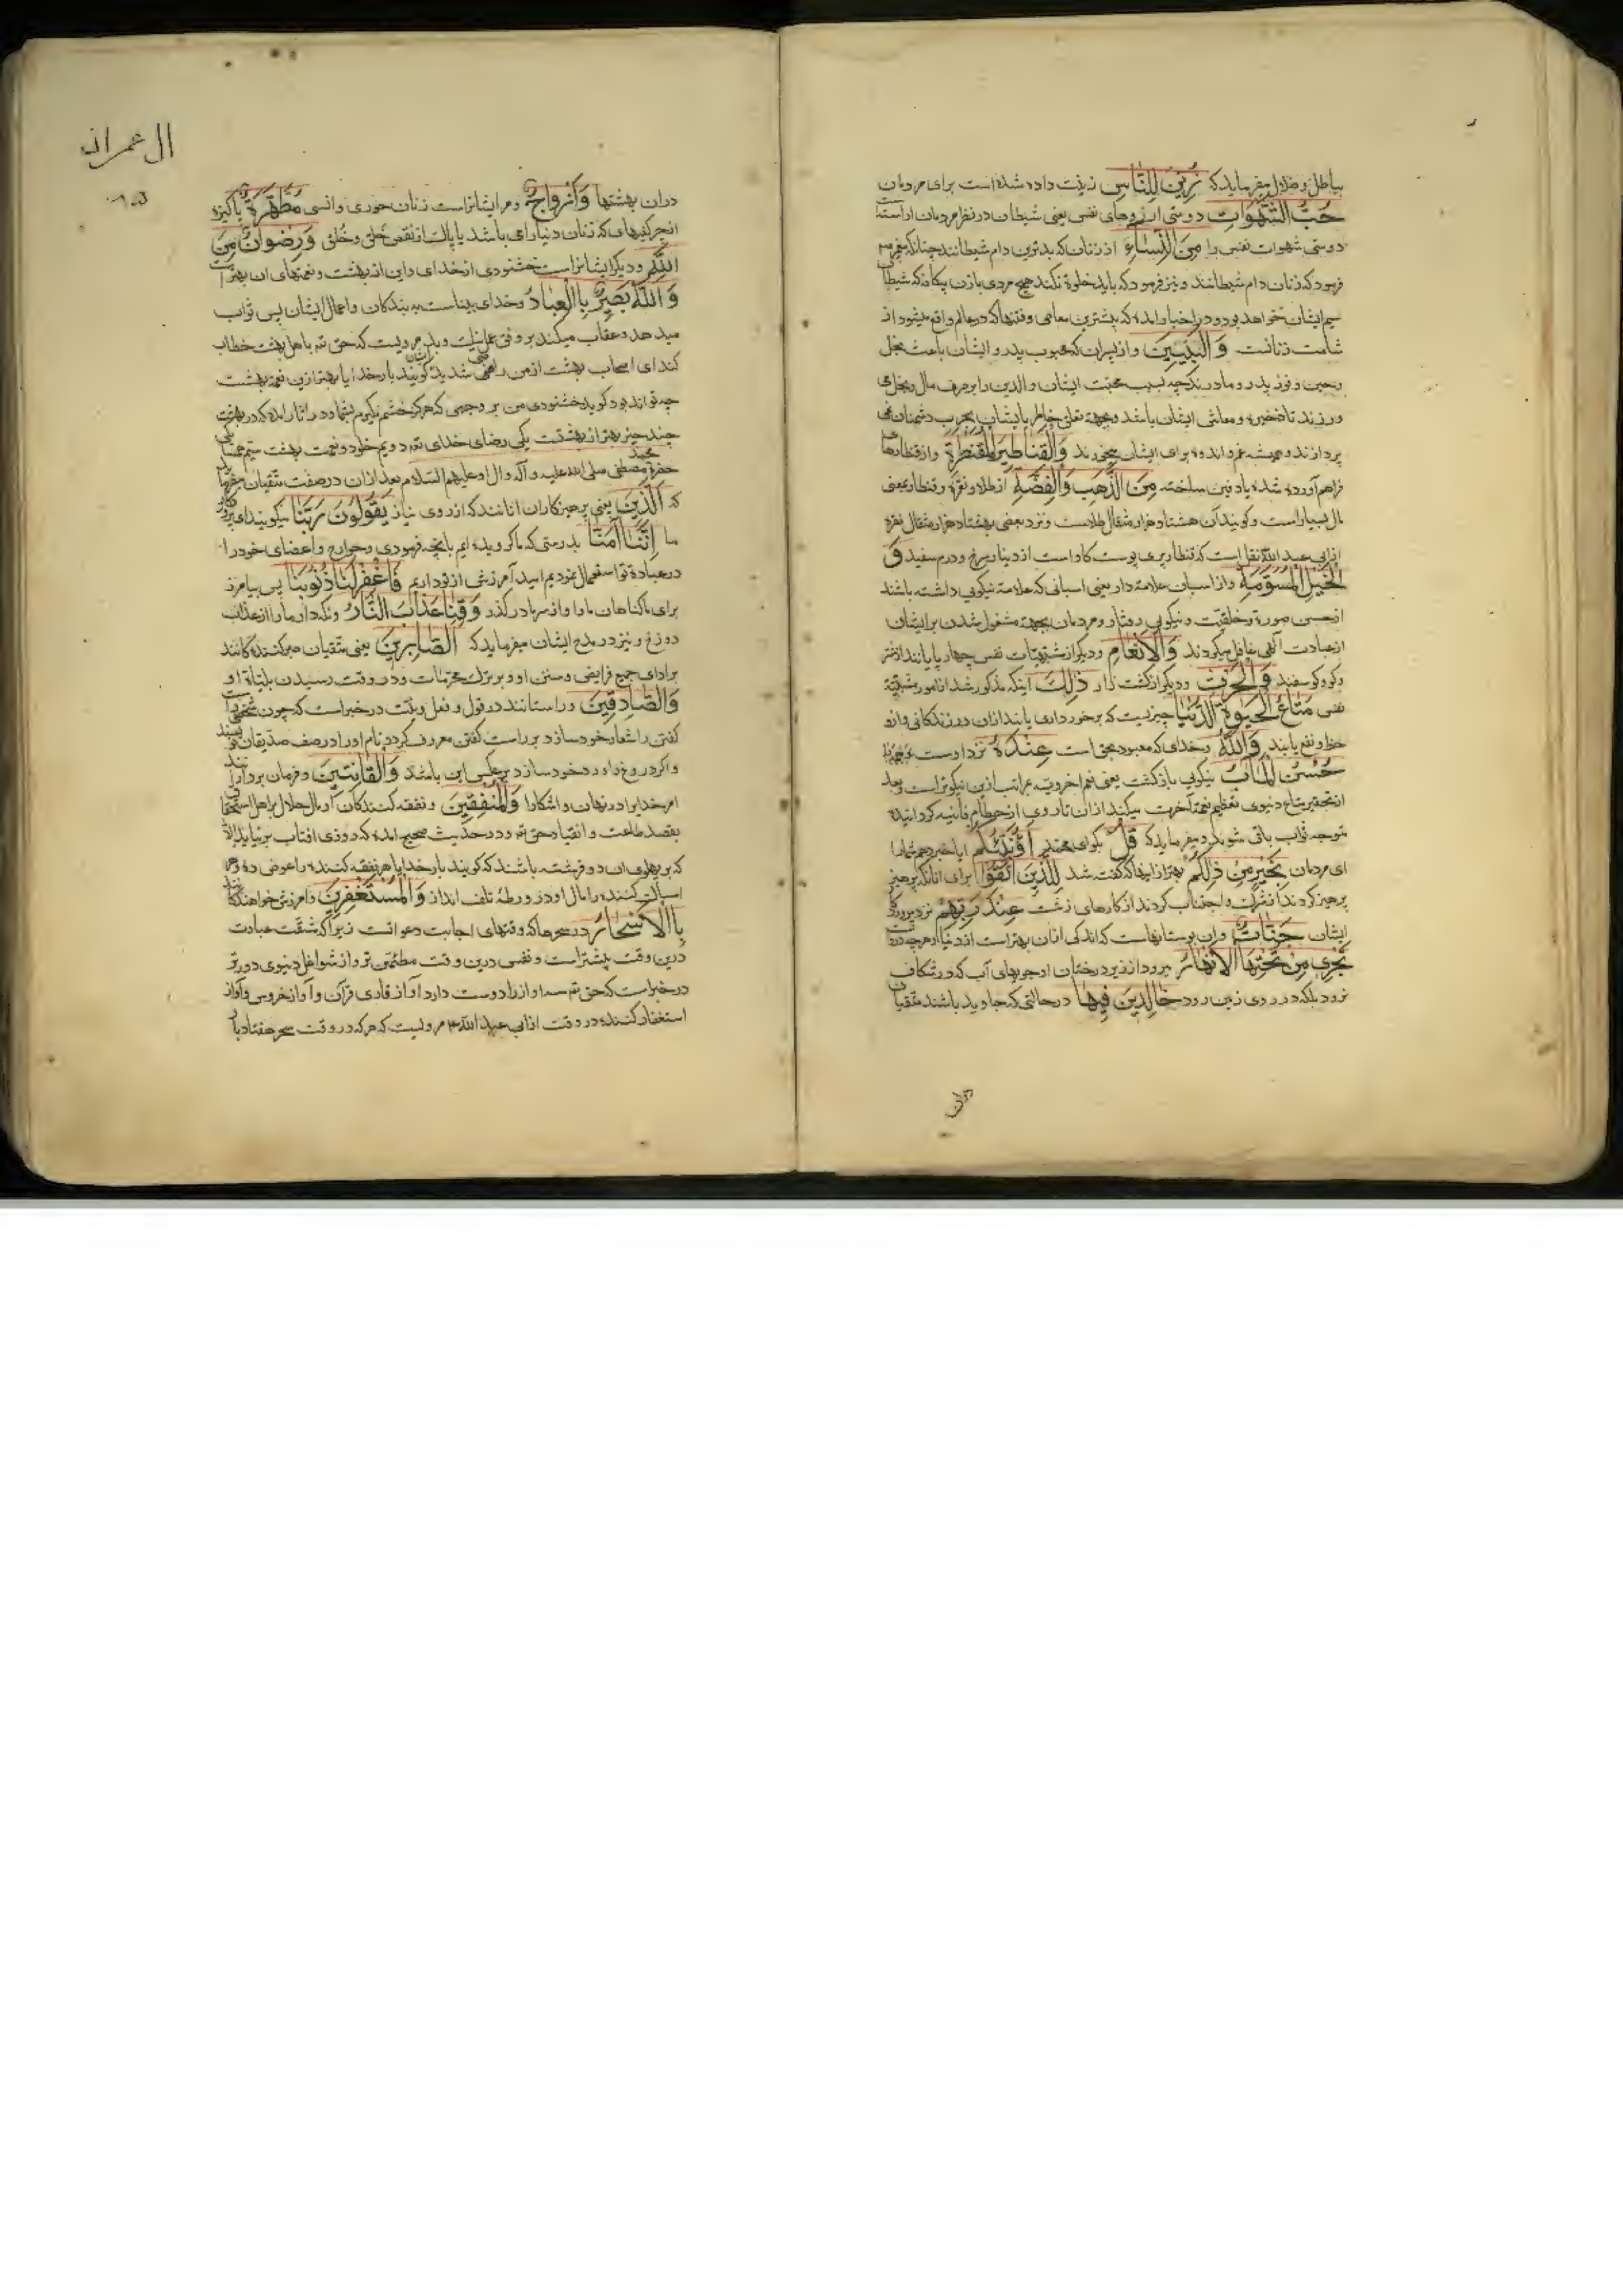 بباطل و ضلال میفرماید که زُیِّنَ لِلنَّاسِ زینت داده شده است برای مردمان
حُبُّ الشَّهَوَاتِ دوستی آرزوهای نفس یعنی شیطان در نظر مردمان اراسته
دوستی شهوات نفس را مِنَ النِّسَاءِ از زنان که بدترین دام شیطانند چنانکه
فرمود که زنان دام شیطانند و نیز فرمود که باید خلوة نکند هیچ مردی با زن بیکانه که شیطان
سیم ایشان خواهد بود و در اخبار امده که بیشترین معاصی و فتنها که در عالم واقع میشود از
شامت زنانست وَالبَنِینَ و از پسران که محبوب پدر و ایشان باعث بخل
و جبن و فوز پدر و مادرند چه بسبب محبت ایشان والدین را بر صرف مال و بخل می
ورزند تا ذخیره و معاش ایشان باشد و بجهة تعلق خاطر بایشان بحرب دشمنان نمی
پردازند و همیشه غم و اندوه برای ایشان میخورند وَالقَنَاطِیرِ المُقَنطَرَةِ و از قنطارهای
فراهم آورده شده یا دفین ساخته مِنَ الذَّهَبِ وَالفِضَّةِ از طلا و نقره و قنطار بمعنی
مال بسیار است و کویند آن هشتاد هزار مثقال طلاست و نزد بعضی هشتاد هزار مثقال نقره
از ابی عبد الله نقل است که قنطار پری پوست کاو است از دینار سرخ و درم سفید وَ
الخَیلِ المُسَوَّمَةِ و از اسبان علامة دار یعنی اسبانی که علامة نیکویی داشته باشند
از حسن صورة و خلقت و نیکویی رفتار و مردمان بجهة مشغول شدن بر ایشان
از عبادت الهی غافل میکردند وَالاَنعَامِ و دیکر از مشتهیات نفس چهارپایانند از شتر
و کاو و کوسفند وَالحَرثِ و دیکر از کشت زار ذَلِکَ اینکه مذکور شد از امور مشتهیة
نفس مَتَاعُ الحَیوةِ الدُّنیَا چیزیست که برخورداری یابند از ان در زندکانی و از او
حظ و نفع یابند وَاللّهُ و خدای که معبود بحق است عِندَهُ نزد اوست
حُسنُ المَآبِ نیکویی بازکشت یعنی نعم اخرویه بمراتب ازین نیکوتر است و بعد
از تحقیر متاع دنیوی تعظیم نعمت آخرت میکند تا از ان روی از حطام فانیه کردانیده
متوجه ثواب باقی شوند و میفرماید که قُل بکو ای محمد اَؤُنَبِّئُکُم ایا خبر دهم شما را
ای مردمان بِخَیرٍ مِن ذَلِکُم بهتر از اینها که کفته شد لِلَّذِینَ اتَّقَوا برای انانکه پرهیز
پرهیز کردند از شرک و اجتناب کردند از کارهای زشت عِندَ رَبِّهِم نزد پروردکار
ایشان جَنَّاتٌ و ان بوستانهاست که اندکی از ان بهتر است از دنیا و هرچه در دنیاست
تَجرِی مِن تَحتِهَا الاَنهَارُ میرود از زیر درختان او جویهای آب که در شکاف
نرود بلکه در روی زمین رود خَالِدِینَ فِیهَا در حالتی که جاوید باشند متقیان
دران
ال عمران
دران بهشتها وَاَزوَاجٌ و مر ایشانراست زنان حوری و انسی مُطَهَّرَةٌ پاکیزه
از چرکیهای که زنان دنیا را می باشد یا پاک از نقص خَلق و خُلق وَرِضوَانٌ مِنَ
اللّهِ و دیکر ایشانراست خشنودی از خدای و این از بهشت و نعمتهای ان بهتر است
وَاللّهُ بَصِیرٌ بِالعِبَادِ و خدای بیناست به بندکان و اعمال ایشان پس ثواب
میدهد و عقاب میکند بر وفق عمل نیک و بد مرویست که حق تع باهل بهشت خطاب
کند ای اصحاب بهشت از من راضی شدید کویند بار خدایا بهتر ازین نعمة بهشت
چه تواند بود کوید خشنودی من بر وجهی که هرکز خشم نکیرم بشما و در اثار امده که در بهشت
چند چیز بهتر از بهشتست یکی رضای خدای تع دویم خلود و نعمت بهشت سیم همسایکی
حضرة محمد مصطفی صلی الله علیه و آله و ال او علیهم السلام بعد از ان در صفت متقیان میفرماید
که اَلَّذِینَ یعنی پرهیزکاران انانند که از روی نیاز یَقُولُونَ رَبَّنَا میکویند ای پروردکار
ما اِنَّنَا آمَنَّا بدرستی که ما کرویده ایم بانچه فرمودی و جوارح و اعضای خود را
در عبادة تو استعمال نمودیم امید آمرزش از تو داریم فَاغفِر لَنَا ذُنُوبَنَا پس بیامرز
برای ما کناهان ما را و از سر ما درکذر وَقِنَا عَذَابَ النَّارِ و نکه دار ما را از عذاب
دوزخ و نیز در مدح ایشان میفرماید که اَلصَّابِرِینَ یعنی متقیان صبر کنندکانند
بر ادای جمیع فرایض و سنن او و بر ترک محرمات و در وقت رسیدن بلیات او
وَالصَّادِقِینَ و راستانند در قول و فعل و نیت در خبر است که چون شخصی راست
کفتن را شعار خود سازد براست کفتن معروف کردد نام او را در صف صدیقان نویسند
و اکر دروغ را ورد خود سازد بر عکس این باشد وَالقَانِتِینَ و فرمان بردارانند
امر خدایرا در نهان و اشکارا وَالمُنفِقِینَ و نفقه کنندکان از مال حلال بر اهل استحقاق
بقصد طاعت و انقیاد حق تع و در حدیث صحیح امده که روزی افتاب بر نیاید الا
که بر پهلوی ان دو فرشته باشند که کویند بار خدایا هر نفقه کننده را عوض ده و هر
امساک کننده را مال او در ورطۀ تلف انداز وَالمُستَغفِرِینَ و امرزش خواهندکانند
بِالاَسحَارِ در سحرها که وقتهای اجابت دعوانست زیرا که مشقت عبادت
درین وقت بیشتر است و نفس درین وقت مطمئن تر و از شواغل دنیوی دورتر
در خبر است که حق تع سه اواز را دوست دارد آواز قاری قرآن و آواز خروس و آواز
استغفار کننده در وقت از ابی عبد الله ع مرویست که هر که در وقت سحر هفتاد بار